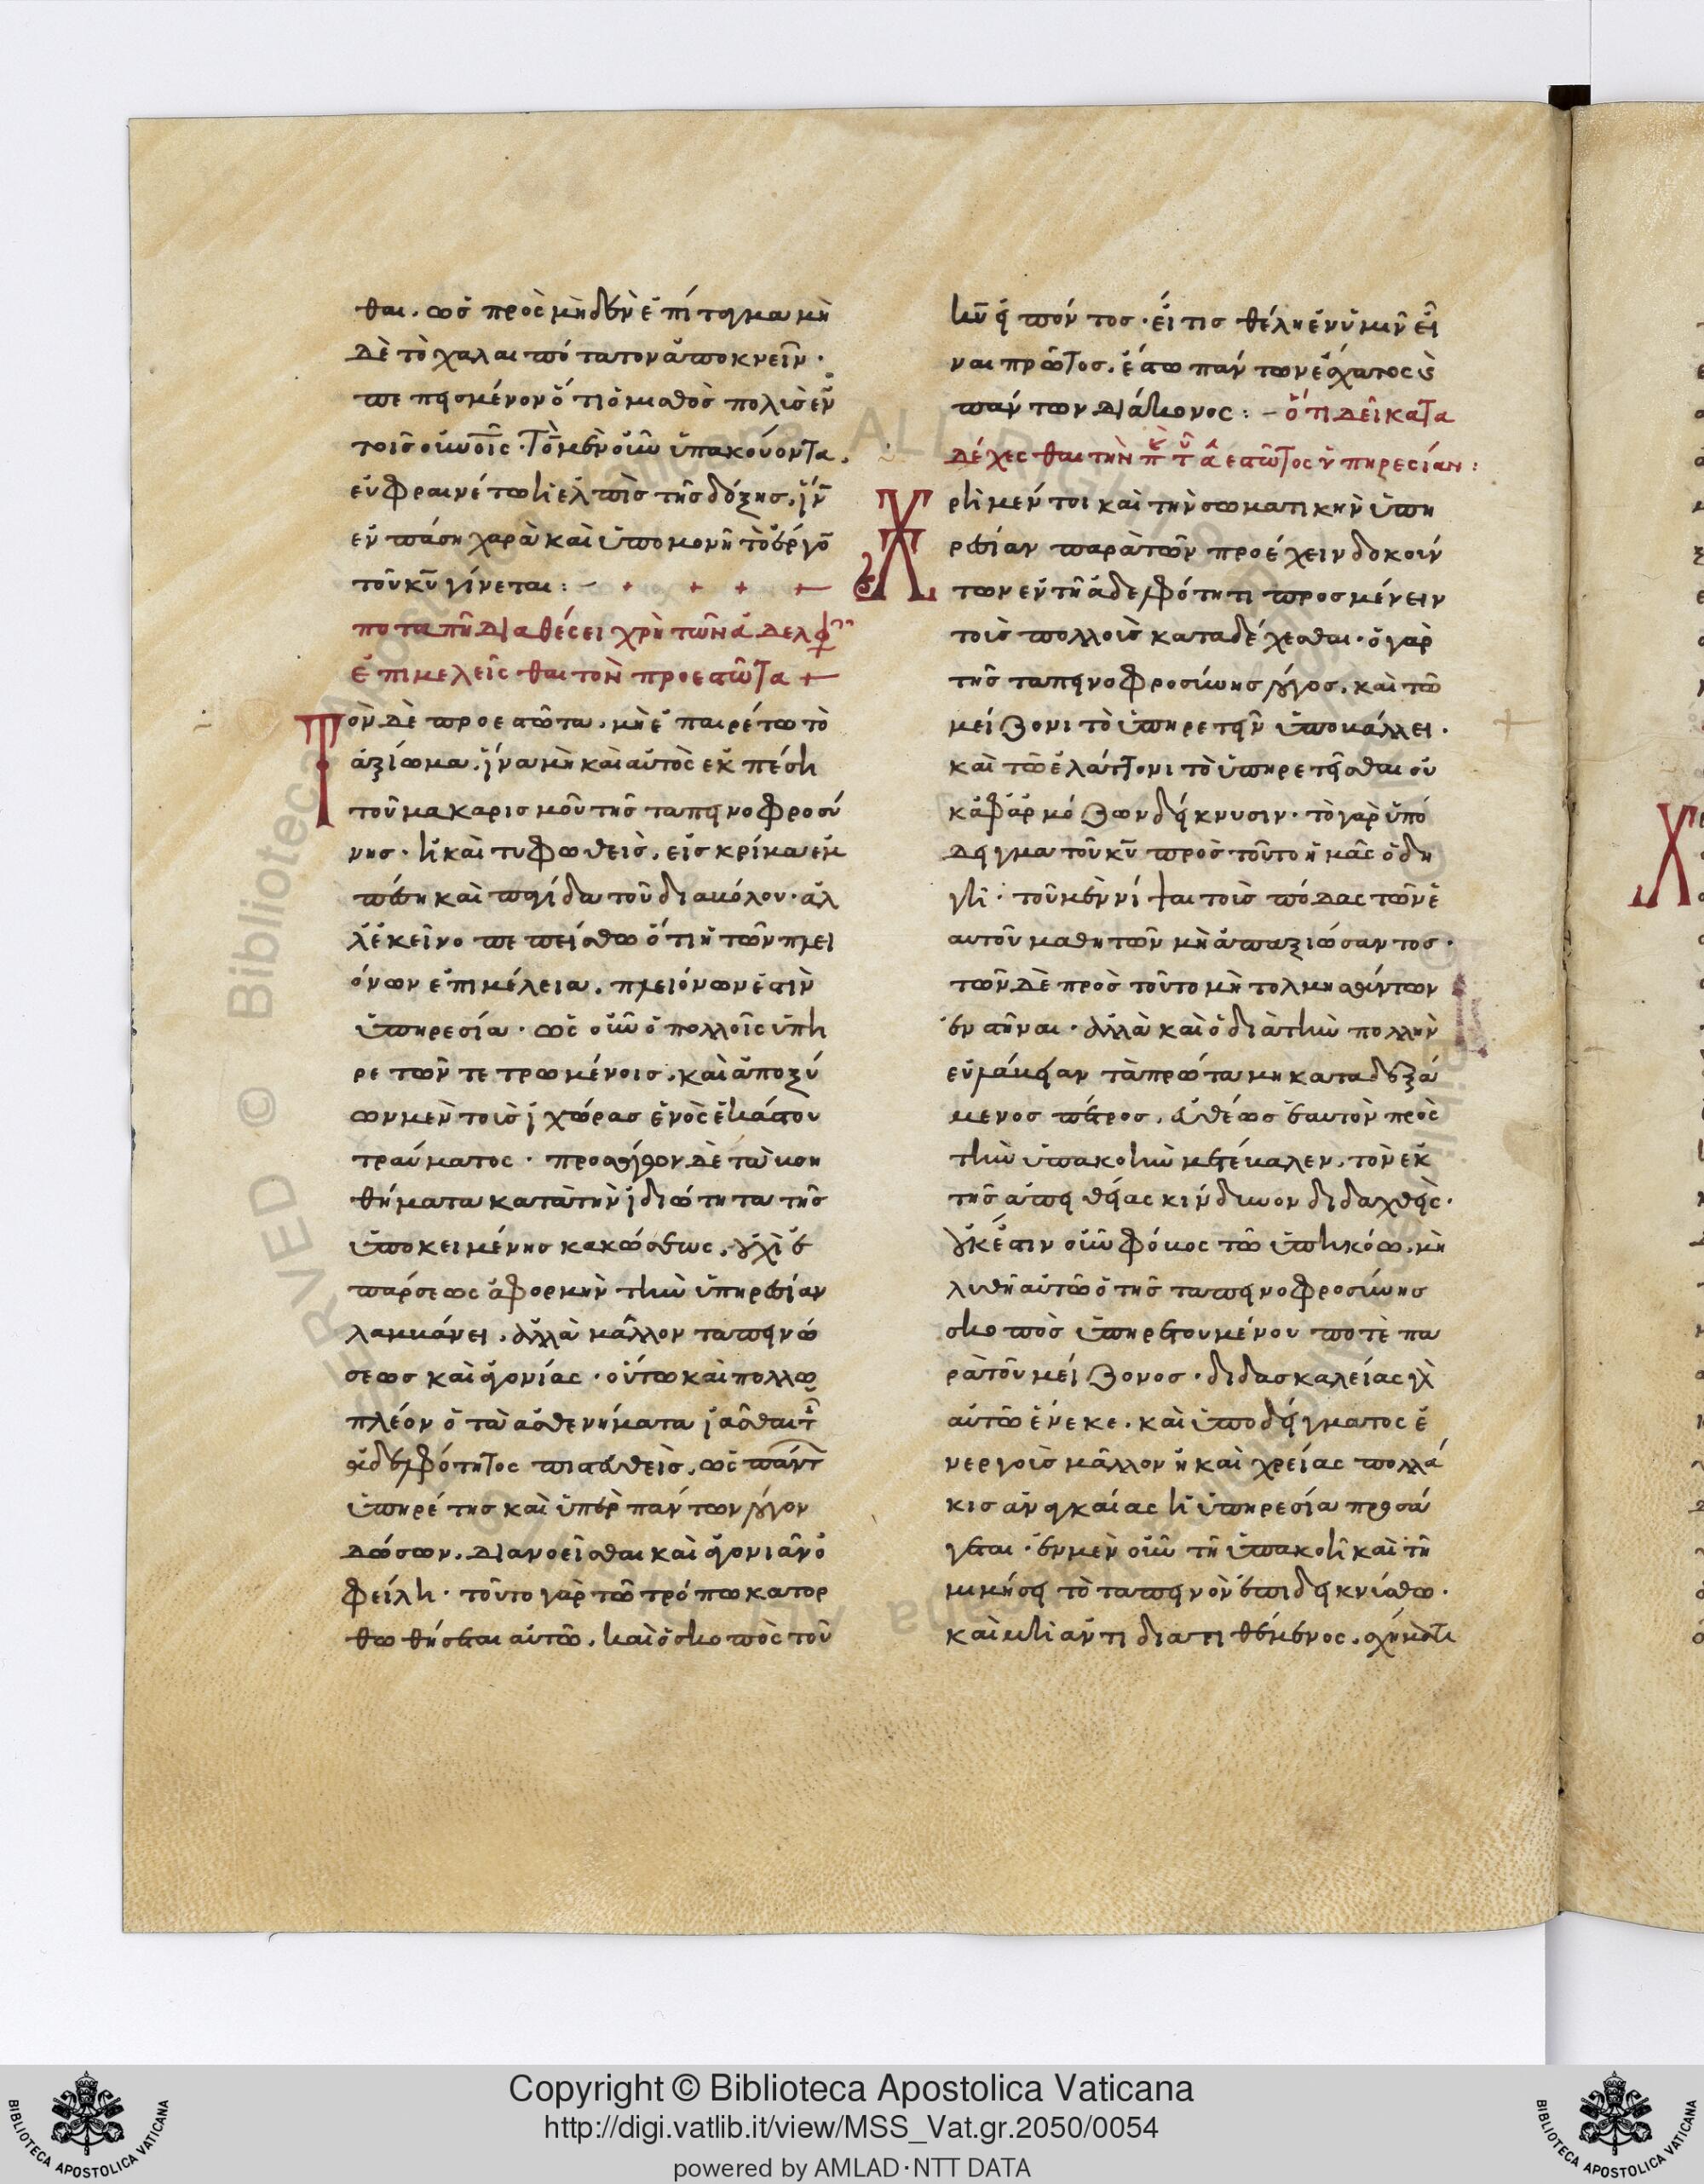 θαι. ὡς πρὸς μηδὲν ἐπίταγμα μη
δὲ τὸ χαλαιπώτατον ἀποκνεῖν·
πεπεισμένον ὅτι ὁ μισθὸς πολὺς ἐν
τοῖς οὐνοῖς· Τὸν μὲν οὖν ὑπακούοντα,
εὐφραινέτω ἡ ἐλπὶς τῆς δόξης, ἵν
ἐν πάση χαρὰ καὶ ὑπομονῆ τὸ ἔργο
τοῦ κυ γίνεται:
ποταπῆ διαθέσει χρὴ τῶν ἀδελφ
ἐπιμελεῖσθαι τὸν προεστῶτα
Τὸν δὲ προεστῶτα, μὴ ἐπαιρέτω τὸ
ἀξίωμα, ἵνα μὴ καὶ αὐτὸς ἐκπέση
τοῦ μακαρισμοῦ τῆς ταπεινοφροσύ
νης· ἢ καὶ τυφωθεὶς, εἰς κρίμα ἐμ
πέση καὶ παγίδα τοῦ διαβόλου· ἀλ
λ' ἐκεῖνο πεπείσθω ὅτι ἡ τῶν πλει
όνων ἐπιμέλεια, πλειόνων ἐστὶν
ὑπηρεσία· ὡς οὖν ὁ πολλοῖς ὑπη
ρετῶν τετρωμένοις, καὶ ἀποξύ
ων μὲν τοὺς ἰχώρας ἑνὸς ἑκάστου
τραύματος· προσάγων δὲ τὰ βοη
θήματα κατὰ τὴν ἰδιότητα τῆς
ὑποκειμένης κακώσεως, οὐχὶ ἐ
πάρσεως ἀφορμὴν τὴν ὑπηρεσίαν
λαμβάνει, ἀλλὰ μᾶλλον ταπεινώ
σεως καὶ ἀγωνίας· οὕτω καὶ πολλῷ
πλέον ὁ τὰ ἀσθενήματα ἰᾶσθαι τ
ἀδελφότητος πιστευθεὶς, ὡς πάντ
ὑπηρέτης καὶ ὑπὲρ πάντων λόγον
δώσων, διανοεῖσθαι καὶ ἀγωνιᾶν ὀ
φείλη· τοῦτο γὰρ τῶ τρόπω κατορ
θωθήσεται αὐτῶ, καὶ ὁ σκοπὸς τοῦ
κυ εἰπόντος· εἴ τις θέλη ἐν ὑμῖν εἶ
ναι πρῶτος, ἔστω πάντων ἔσχατος κ
πάντων διάκονος:– ὅτι δεῖ κατα
δέχεσθαι τὴν π τ ἀεστῶτος ὑπηρεσίαν:
Χρὴ μέντοι καὶ τὴν σωματικὴν ὑπη
ρεσίαν παρὰ τῶν προέχειν δοκούν
των ἐν τῆ ἀδελφότητι προσμένειν
τοὺς πολλοὺς καταδέχεσθαι· ὁ γὰρ
τῆς ταπεινοφροσύνης λόγος, καὶ τῶ
μείζονι τὸ ὑπηρετεῖν ὑποβάλλει·
καὶ τῶ ἐλάττονι τὸ ὑπηρετεῖσθαι οὐ
κ ἀφάρμόζων δείκνυσιν· τὸ γὰρ ὑπό
δειγμα τοῦ κυ πρὸς τοῦτο ἡμᾶς ὁδη
γῆ· τοῦ μὲν νίψαι τοὺς πόδας τῶν ἑ
αυτοῦ μαθητῶν μὴ ἀπαξιώσαντος·
τῶν δὲ πρὸς τοῦτο μὴ τολμησάντων
ἐνστῆναι· ἀλλὰ καὶ ὁ διὰ τὴν πολλὴν
εὐλάβειαν τὰ πρῶτα μὴ καταδεξά
μενος πέτρος, εὐθέως ἑαυτὸν πρὸς
τὴν ὑπακοὴν μετέβαλεν, τὸν ἐκ
τῆς ἀπειθείας κίνδυνον διδαχθεὶς·
οὐκ ἔστιν οὖν φόβος τῶ ὑπηκόω, μὴ
λυθῆ αὐτῶ ὁ τῆς ταπεινοφροσύνης
σκοπὸς ὑπηρετουμένου ποτὲ πα
ρὰ τοῦ μείζονος· διδασκαλείας γὰ
αὐτῶ ἕνεκε, καὶ ὑποδείγματος ἐ
νεργοῦς μᾶλλον ἢ καὶ χρείας πολλά
κις ἀναγκαίας ἡ ὑπηρεσία προσά
γεται· ἐν μὲν οὖν τῆ ὑπακοῆ καὶ τῆ
μιμήσει τὸ ταπεινὸν ἐπιδεικνύσθω·
καὶ μὴ ἀντιδιατιθέμενος, σχήματι
Copyright © Biblioteca Apostolica Vaticana
http://digi.vatlib.it/view/MSS_Vat.gr.2050/0054
powered by AMLAD·NTT DATA
BIBLIOTECA APOSTOLICA VATICANA
BIBLIOTECA APOSTOLICA VATICANA